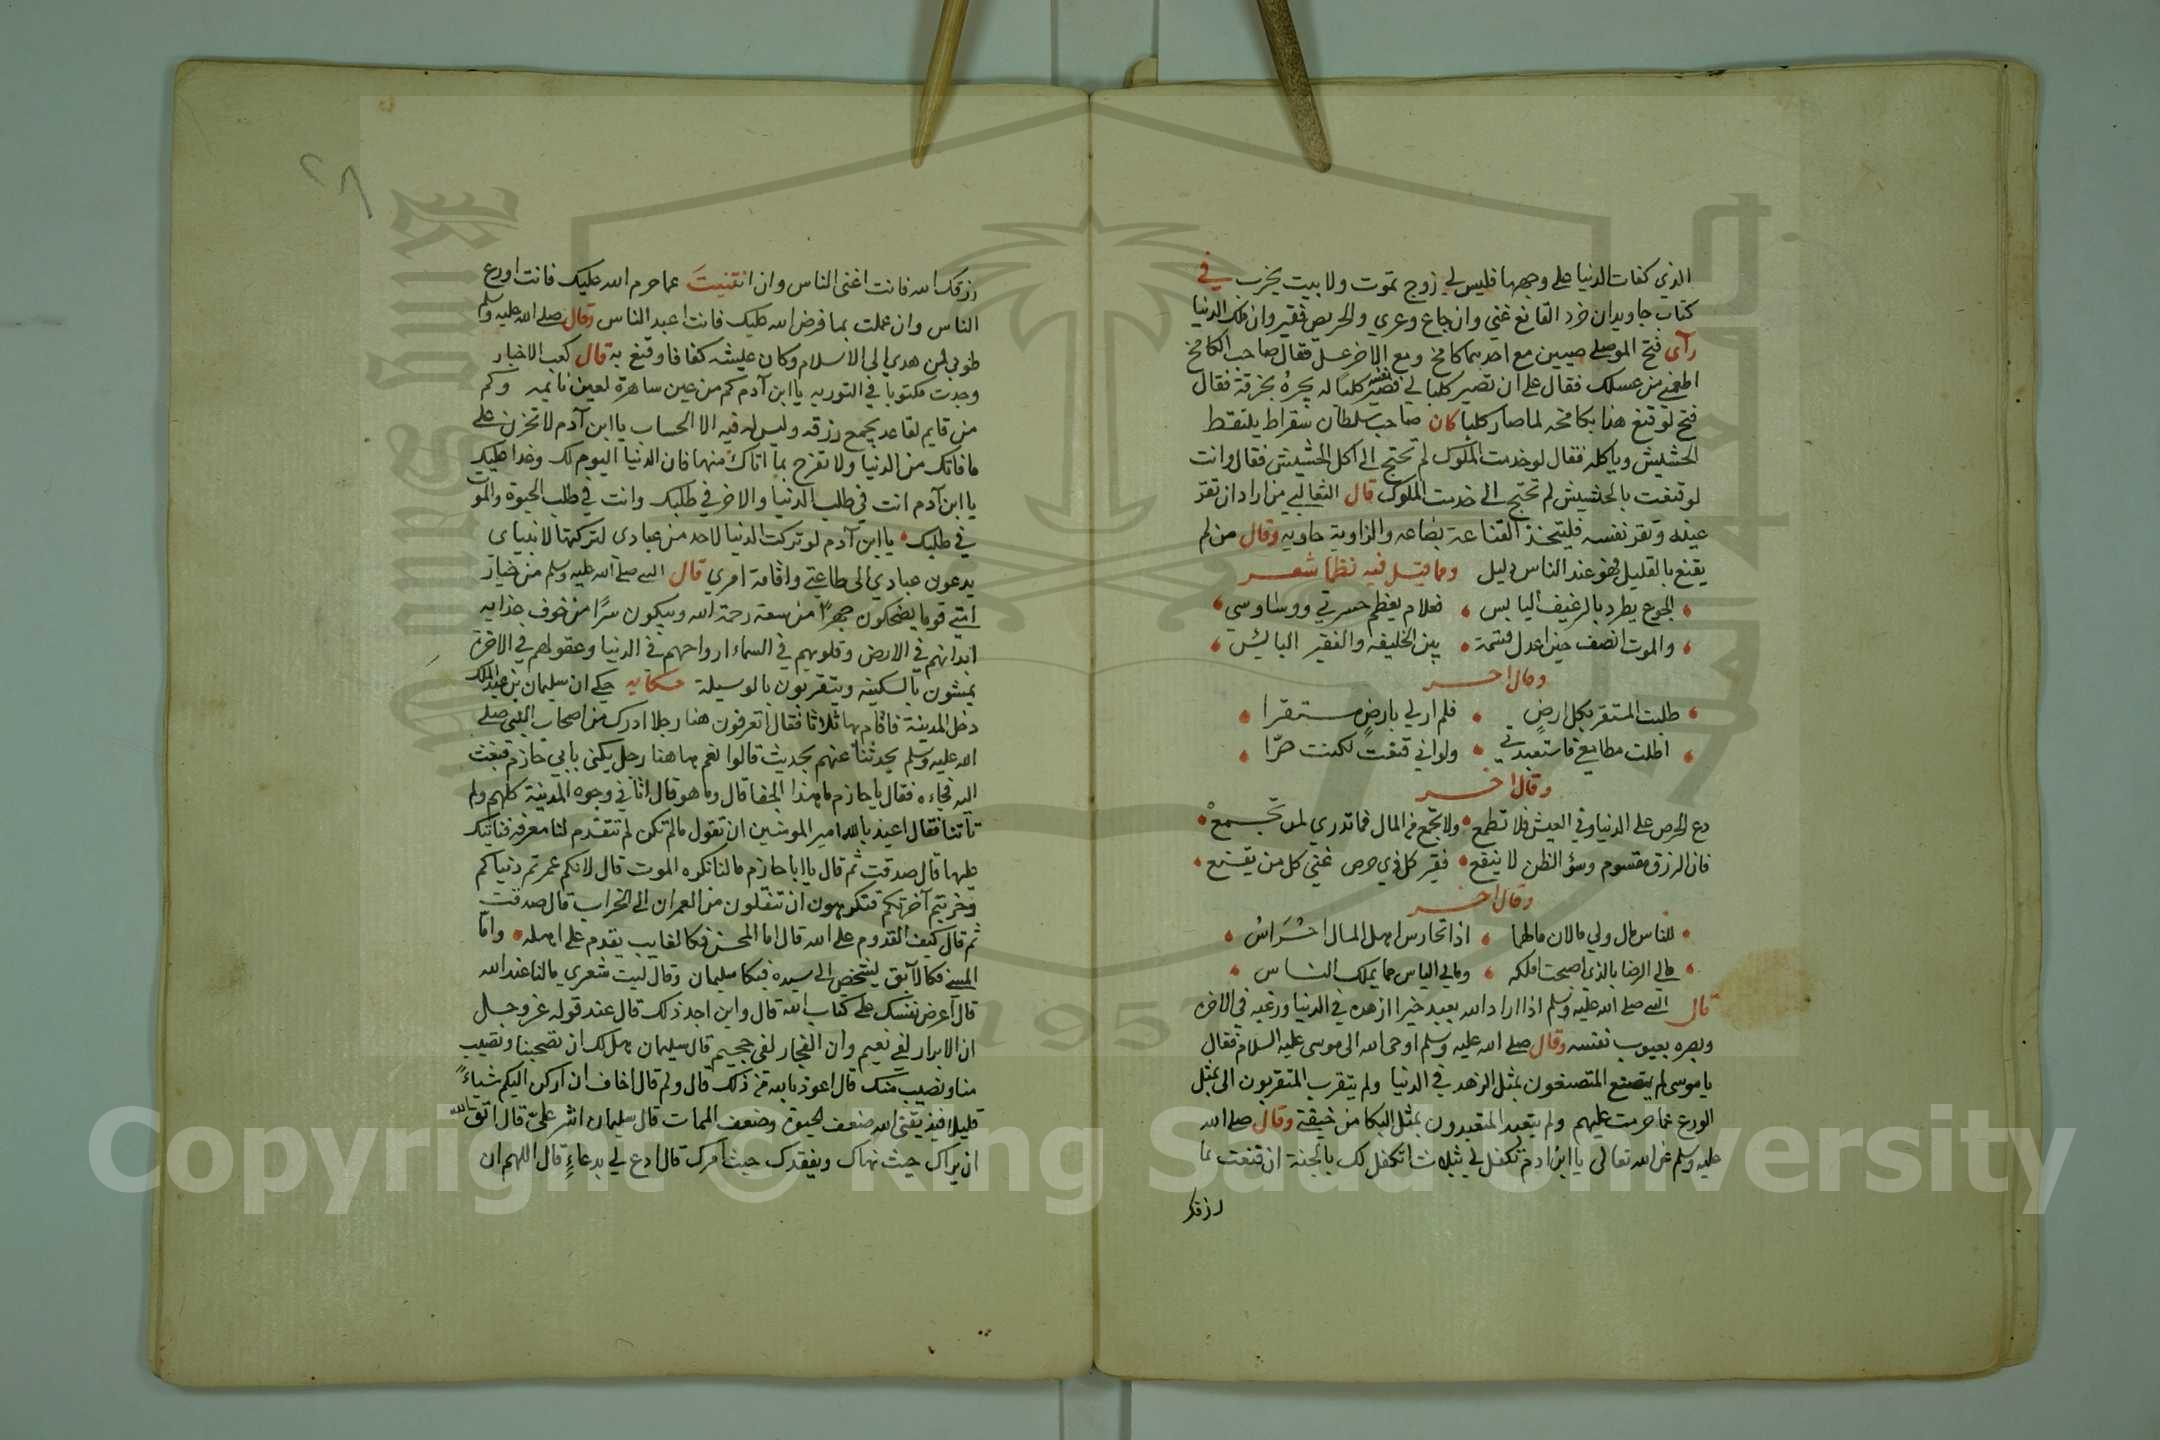 الذي كفأت الدنيا على وجهها فليس لي زوج تموت ولا بيت يخرب في
كتاب جاويدان خرد القانع غني وان جاع وعري والحريص فقير وان ملك الدنيا
رأى فتح الموصلي صبيين مع احدهما كامخ ومع الاخر عسل فقال صاحب الكامخ
اطعمني من عسلك فقال على ان تصير كلبا لي فصير نفسه كلبا له يجره بخرقة فقال
فتح لو قنع هذا بكامخه لما صار كلبا كان صاحب سلطان سقراط يلتقط
الحشيش وياكله فقال لو خدمت الملوك لم تحتج الى اكل الحشيش فقال وانت
لو قنعت بالحشيش لم تحتج الى خدمت الملوك قال الثعالبي من اراد ان تقر
عينه وتقر نفسه فليتخذ القناعة بضاعه والزاوية حاويه وقال من لم
يقنع بالقليل فهو عند الناس ذليل ومما قيل فيه نظما شعر
الجوع يطرد بالرغيف اليابس فعلام يعظم حسرتي ووساوسي
والموت انصف حين اعدل قسمة بين الخليفه والفقير البائس
وقال اخر
طلبت المستقر بكل ارض فلم ار لي بارض مستقرا
اطلت مطامعي فاستعبدتني ولو اني قنعت لكنت حرّا
وقال اخر
دع الحرص على الدنيا وفي العيش فلا تطمع ولا تجمع من المال فما تدري لمن تجمع
فان الرزق مقسوم وسؤ الظن لا ينفع فقير كل ذي حرص غني كل من يقنع
وقال اخر
للناس مال ولي مالان مالهما اذا تحارس اهل المال احْرَاسُ
مالي الرضا بالذي اصبحت املكه ومالي الياس مما يملك الناس
قال النبي صلى الله عليه وسلم اذا اراد الله بعبد خيرا ازهده في الدنيا ورغبه في الاخره
وبصره بعيوب نفسه وقال صلى الله عليه وسلم اوحى الله الى موسى عليه السلام فقال
يا موسى لم يتصنع المتصنعون بمثل الزهد في الدنيا ولم يتقرب المتقربون الى بمثل
الورع عما حرمت عليهم ولم يتعبد المتعبدون بمثل البكا من خيفة وقال صلى الله
عليه وسلم عن الله تعالى يا ابن ادم تكفل لي بثلاث اتكفل لك بالجنة ان قنعت بما
رزقك
رزقك الله فانت اغنى الناس وان انتهيت عما حرم الله عليك فانت اورع
الناس وان عملت بما فرض الله عليك فانت اعبد الناس وقال صلى الله عليه وسلم
طوبى لمن هدي الى الاسلام وكان عليشه كفافا وقنع به قال كعب الاخبار
وجدت مكتوبا في التوريه يا ابن آدم كم من عين ساهرة لعين نايمه وكم
من قايم لقاعد يجمع رزقه وليس له فيه الا الحساب يا ابن آدم لا تحزن على
ما فاتك من الدنيا ولا تفرح بما اتاك منها فان الدنيا اليوم لك وغدا عليك
يا ابن آدم انت في طلب الدنيا والاخر في طلبك وانت في طلب الحيوة والموت
في طلبك يا ابن آدم لو تركت الدنيا لاحد من عبادي لتركتها لانبياي
يدعون عبادي الى طاعتي واقامة امري قال النبي صلى الله عليه وسلم من خيار
امتي قوما يضحكون جهرًا من سعة رحمة الله ويبكون سرًا من خوف عذابه
ابدانهم في الارض وقلوبهم في السماء ارواحهم في الدنيا وعقولهم في الاخرة
يمشون بالسكينه ويتقربون بالوسيلة حكايه حكي ان سليمان بن عبد الملك
دخل المدينة فاقام بها ثلاثا فقال اتعرفون هنا رجلا ادرك من اصحاب النبي صلى
الله عليه وسلم يحدثنا عنهم بحديث قالوا نعم ها هنا رجل يكنى بابي حازم فبعث
اليه فجاءه فقال يا حازم ما هذا الجفا قال وما هو قال اتاني وجوه المدينة كلهم ولم
تاتنا فقال اعيذ بالله امير المومنين ان تقول ما لم تكن لم تتقدم لنا معرفه فناتيك
عليها قال صدقت ثم قال يا ابا حازم مالنا نكره الموت قال لانكم عمرتم دنياكم
وخربتم آخرتكم فتكرهون ان تنقلون من العمران الى الخراب قال صدقت
ثم قال كيف القدوم على الله قال اما المحسن فكالغايب يقدم على اهله وامّا
المسي فكالآبق يشخص الى سيده فبكا سليمان وقال ليت شعري مالنا عند الله
قال اعرض نفسك على كتاب الله قال واين اجد ذلك قال عند قوله عز وجل
ان الابرار لفي نعيم وان الفجار لفي جحيم قال سليمان هل لك ان تصحبنا وتصيب
منا ونصيب منك قال اعوذ بالله من ذلك قال ولم قال اخاف ان اركن اليكم شياءً
قليلا فيذيقني الله ضعف الحيوة وضعف الممات قال سليمان اشر عليّ قال اتق الله
ان يراك حيث نهاك ويفقدك حيث امرك قال ادع لي بدعاءٍ قال اللهم ان
Copyright © King Saud University
1957